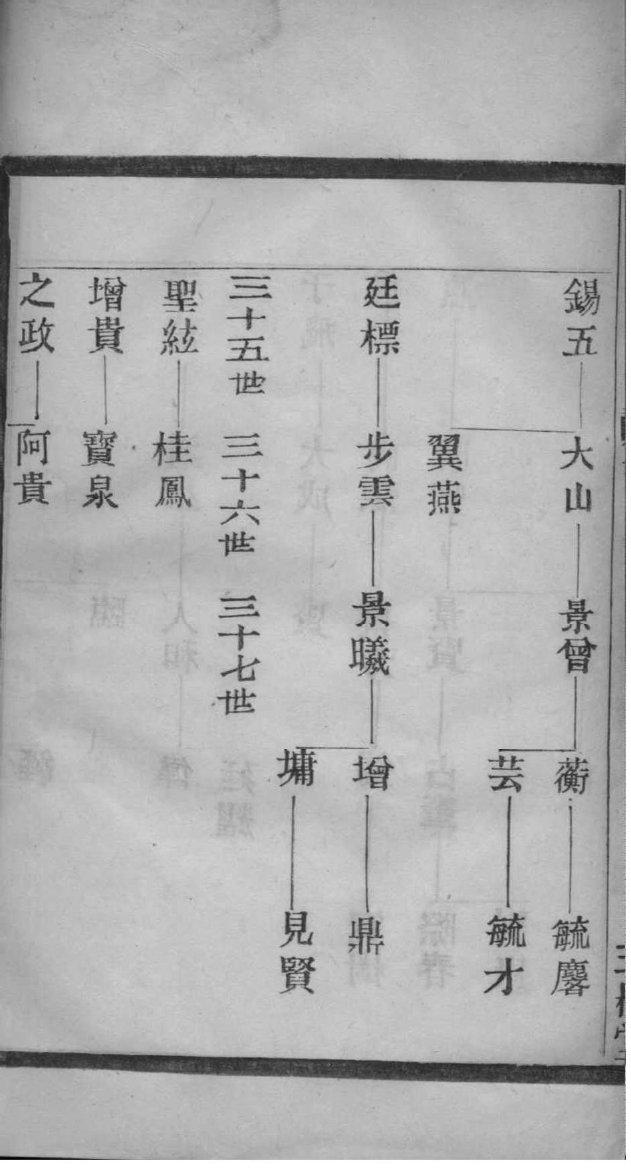 錫五
大山
景曾
蘅
毓麐
芸
毓才
翼燕
廷標
步雲
景曦
增
鼎
墉
見賢
三十五世
三十六世
三十七世
聖紘
桂鳳
增貴
寶泉
之政
阿貴